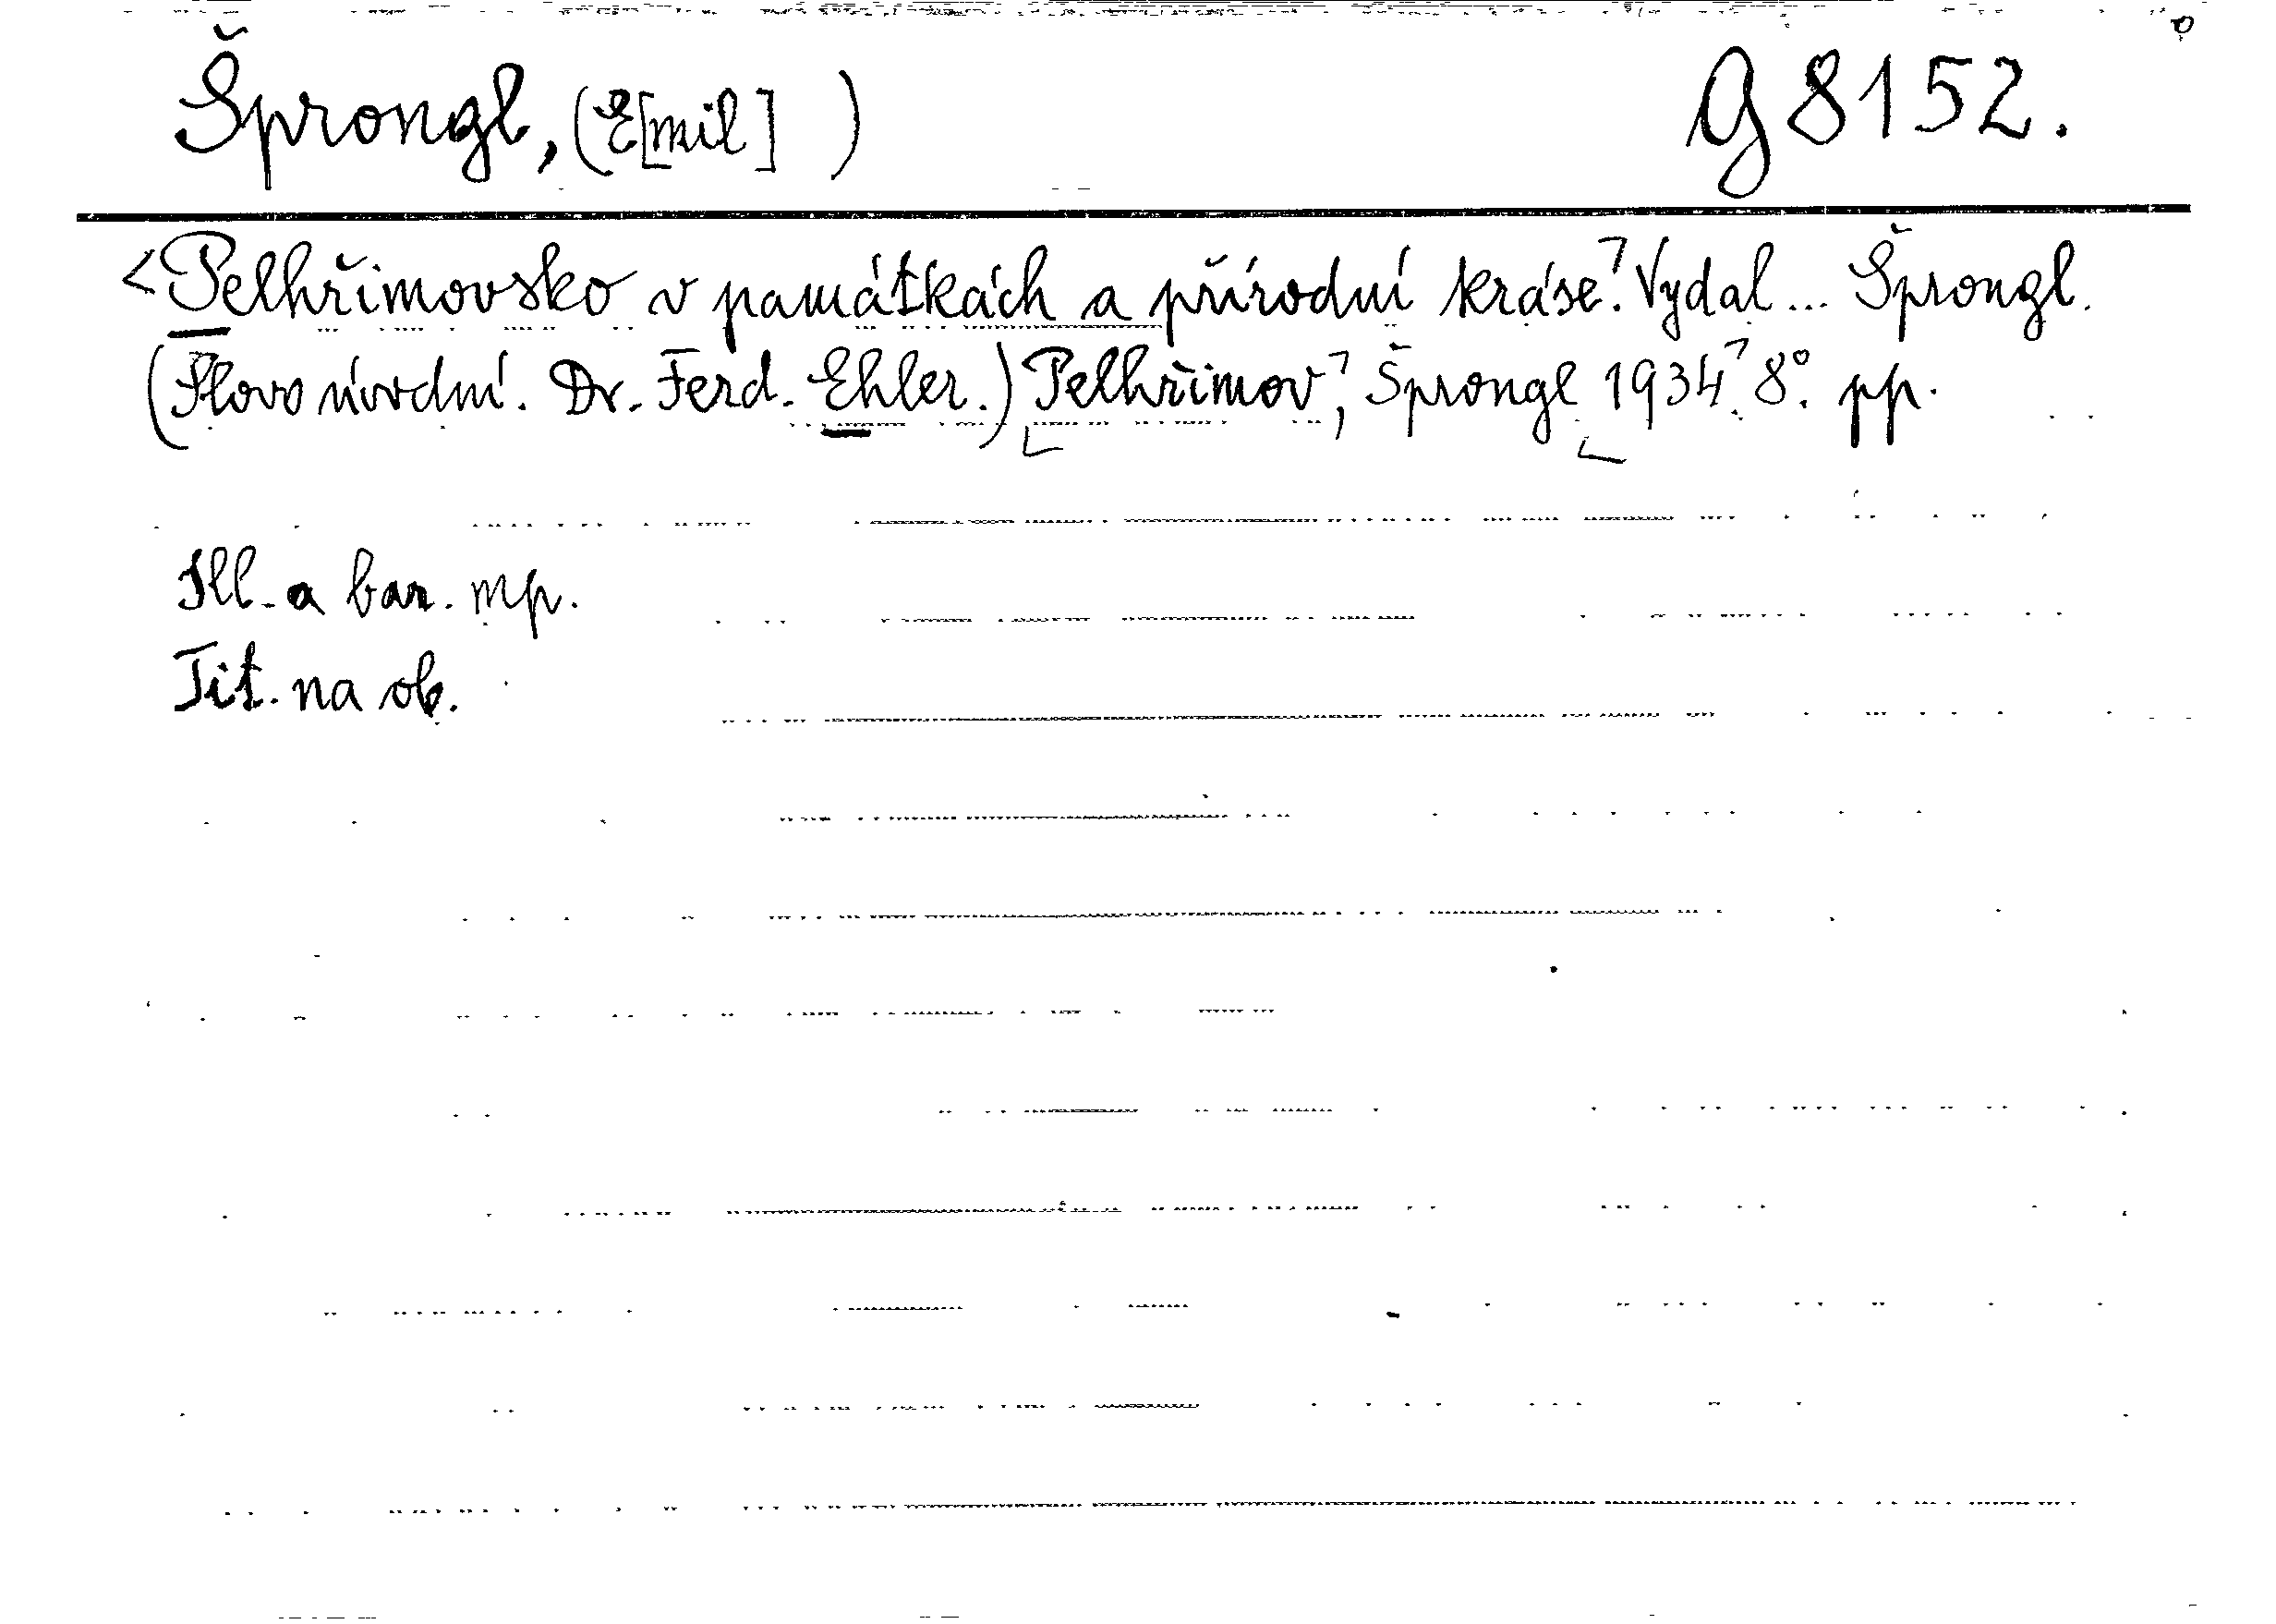 Šprongl, (E[mil] ) G 8152.
<Pelhřimovsko v památkách a přírodní kráse. Vydal... Šprongl.
(Slovo úvodní. Dr. Ferd. Ehler.) Pelhřimov, Šprongl 1934. 8°. pp.
Ill. a bar. mp.
Tit. na ob.